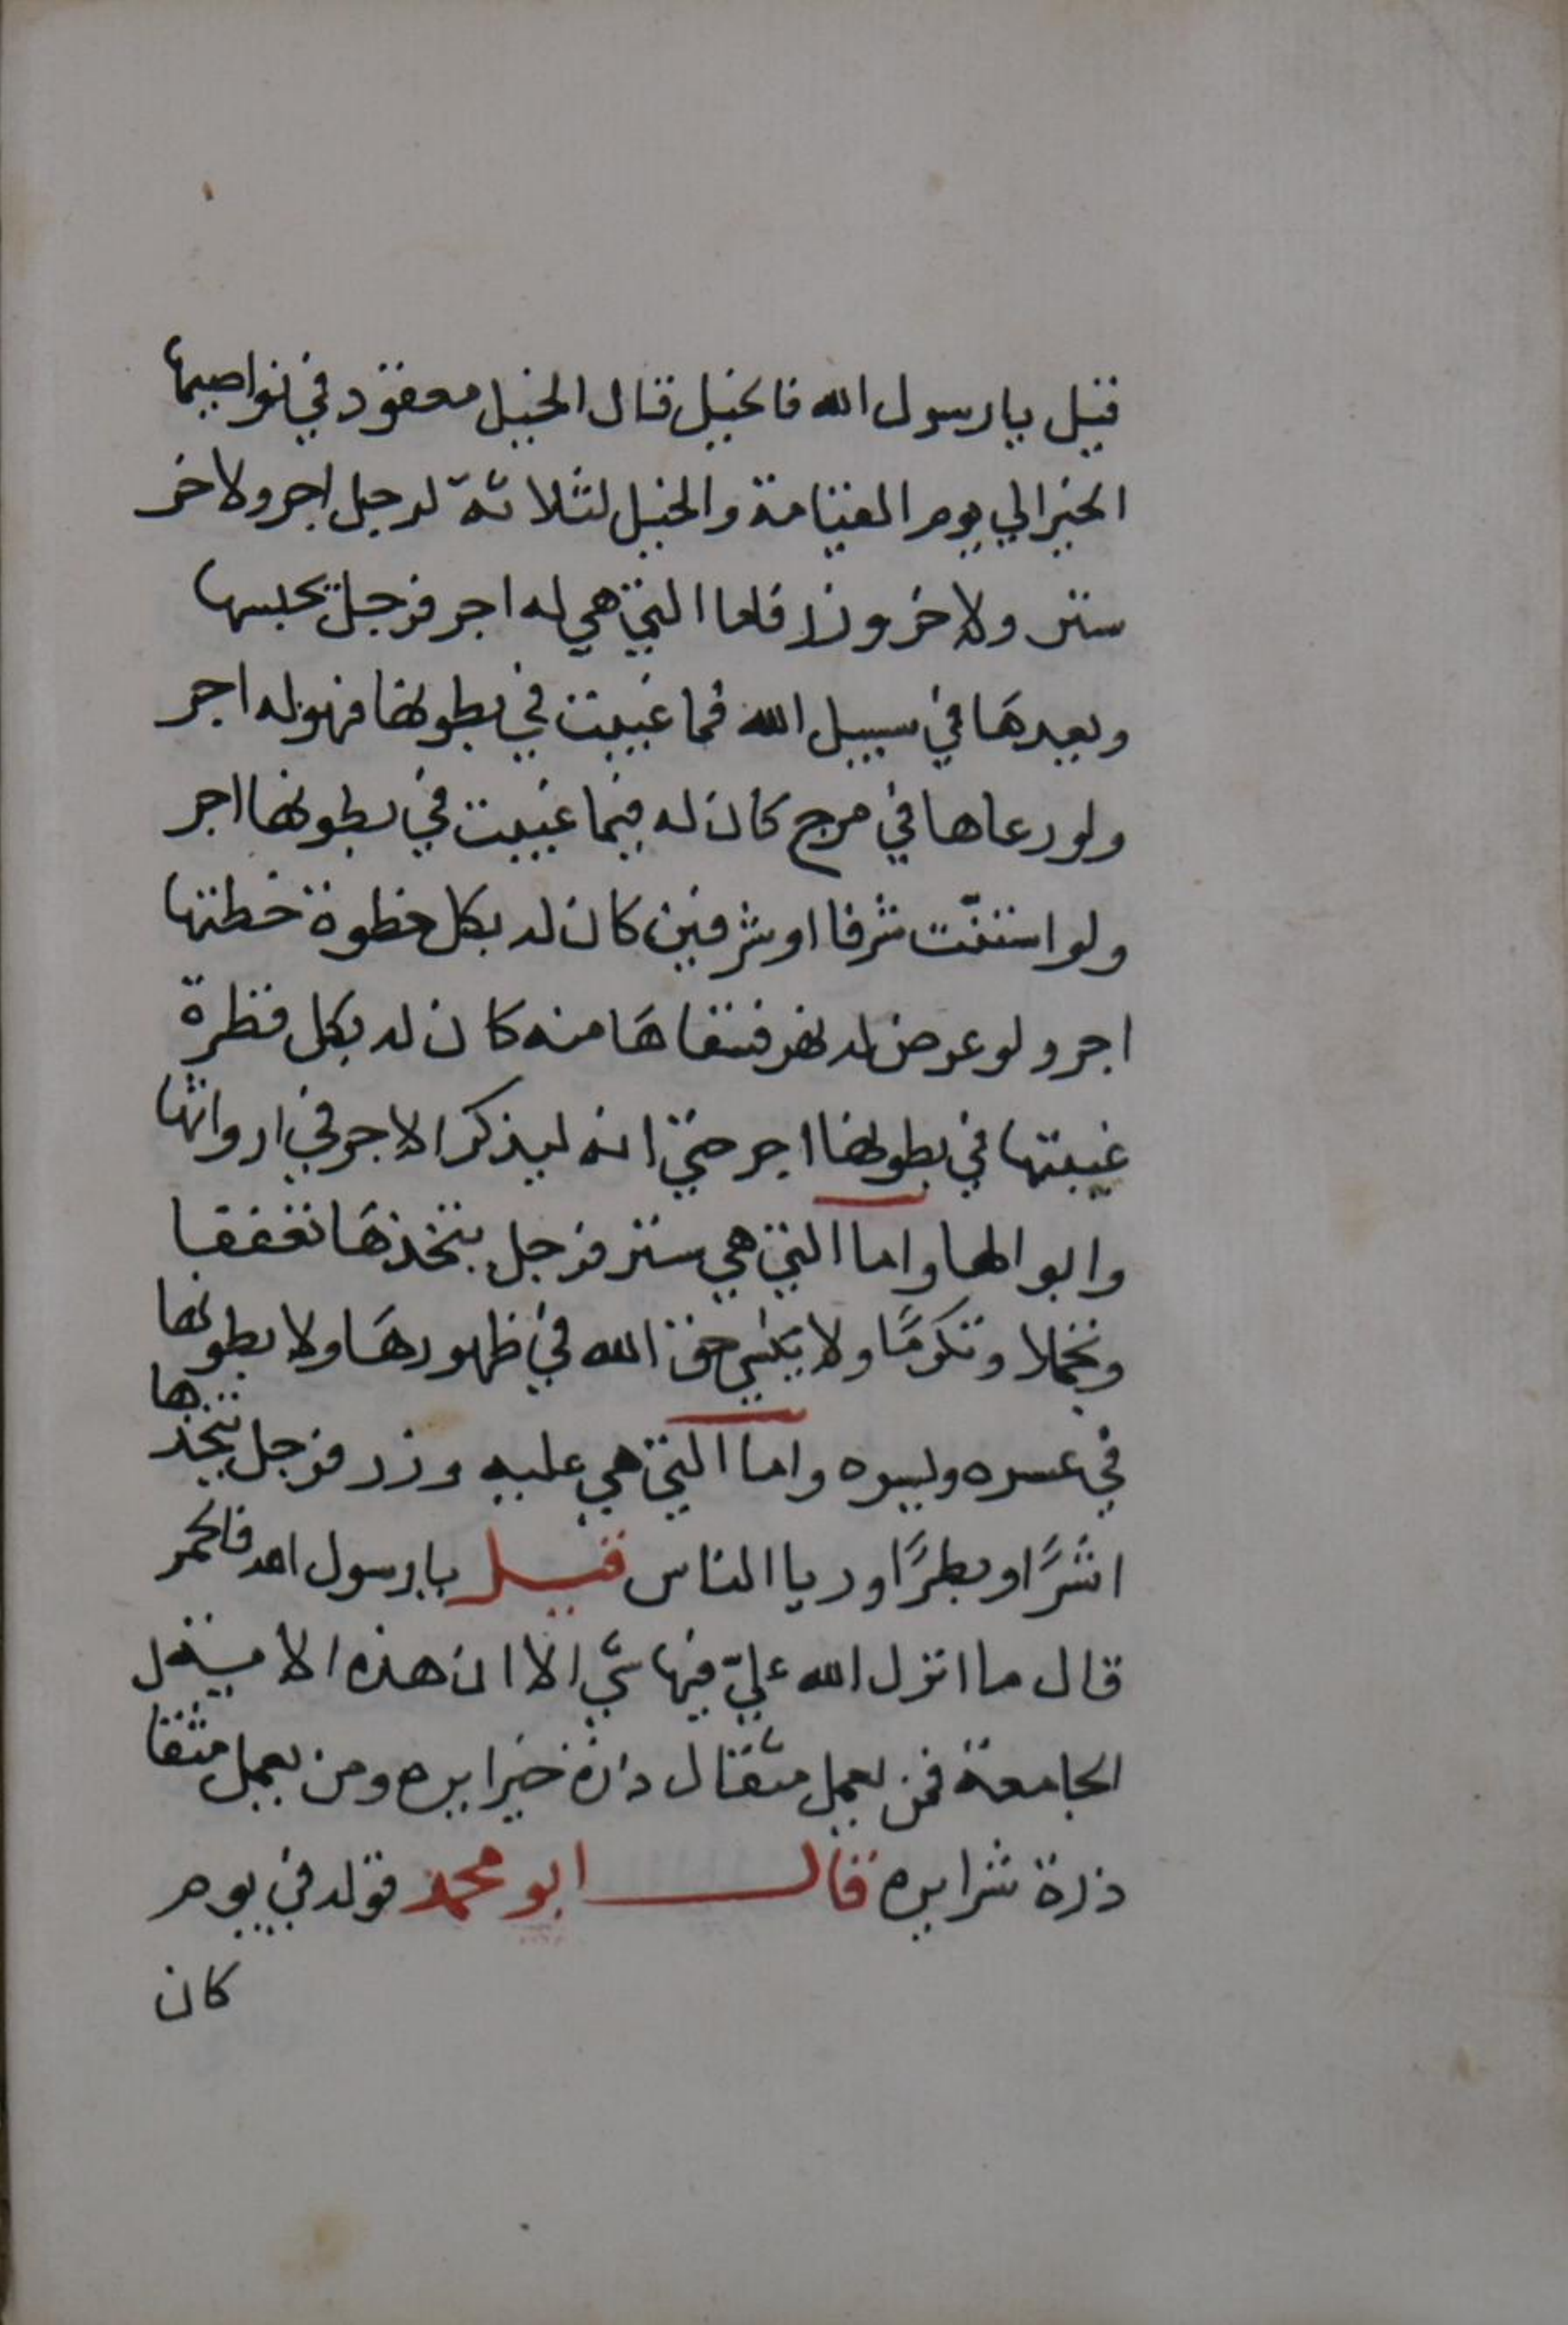 قيل يا رسول الله فالخيل قال الخيل معقود في نواصيها
الخير الي يوم القيامة والخيل لثلاثة لرجل اجر ولاخر
ستر ولاخر وزر فاما التي هي له اجر فرجل يحبسها
ويعدها في سبيل الله فما غيبت في بطونها فهو له اجر
ولو رعاها في مرج كان له فيما غيبت في بطونها اجر
ولو استنّت شرفا او شرفين كان له بكل خطوة خطتها
اجر ولو عرض له نهر فسقاها منه كان له بكل قطرة
غيبتها في بطونها اجر حتي انه ليذكر الاجر في ارواثها
وابوالها واما التي هي ستر فرجل يتخذها تعففا
وتجملا وتكرمًا ولا ينسي حق الله في ظهورها ولا بطونها
في عسره ويسره واما التي هي عليه وزر فرجل يتخذها
اشرًا وبطرًا وريا الناس قيل يا رسول الله فالحمر
قال ما انزل الله عليّ فيها شي الا ان هذه الاية
الجامعة فمن يعمل مثقال ذرة خيرا يره ومن يعمل مثقا
ذرة شرا يره قال ابو محمد قوله في يوم
كان